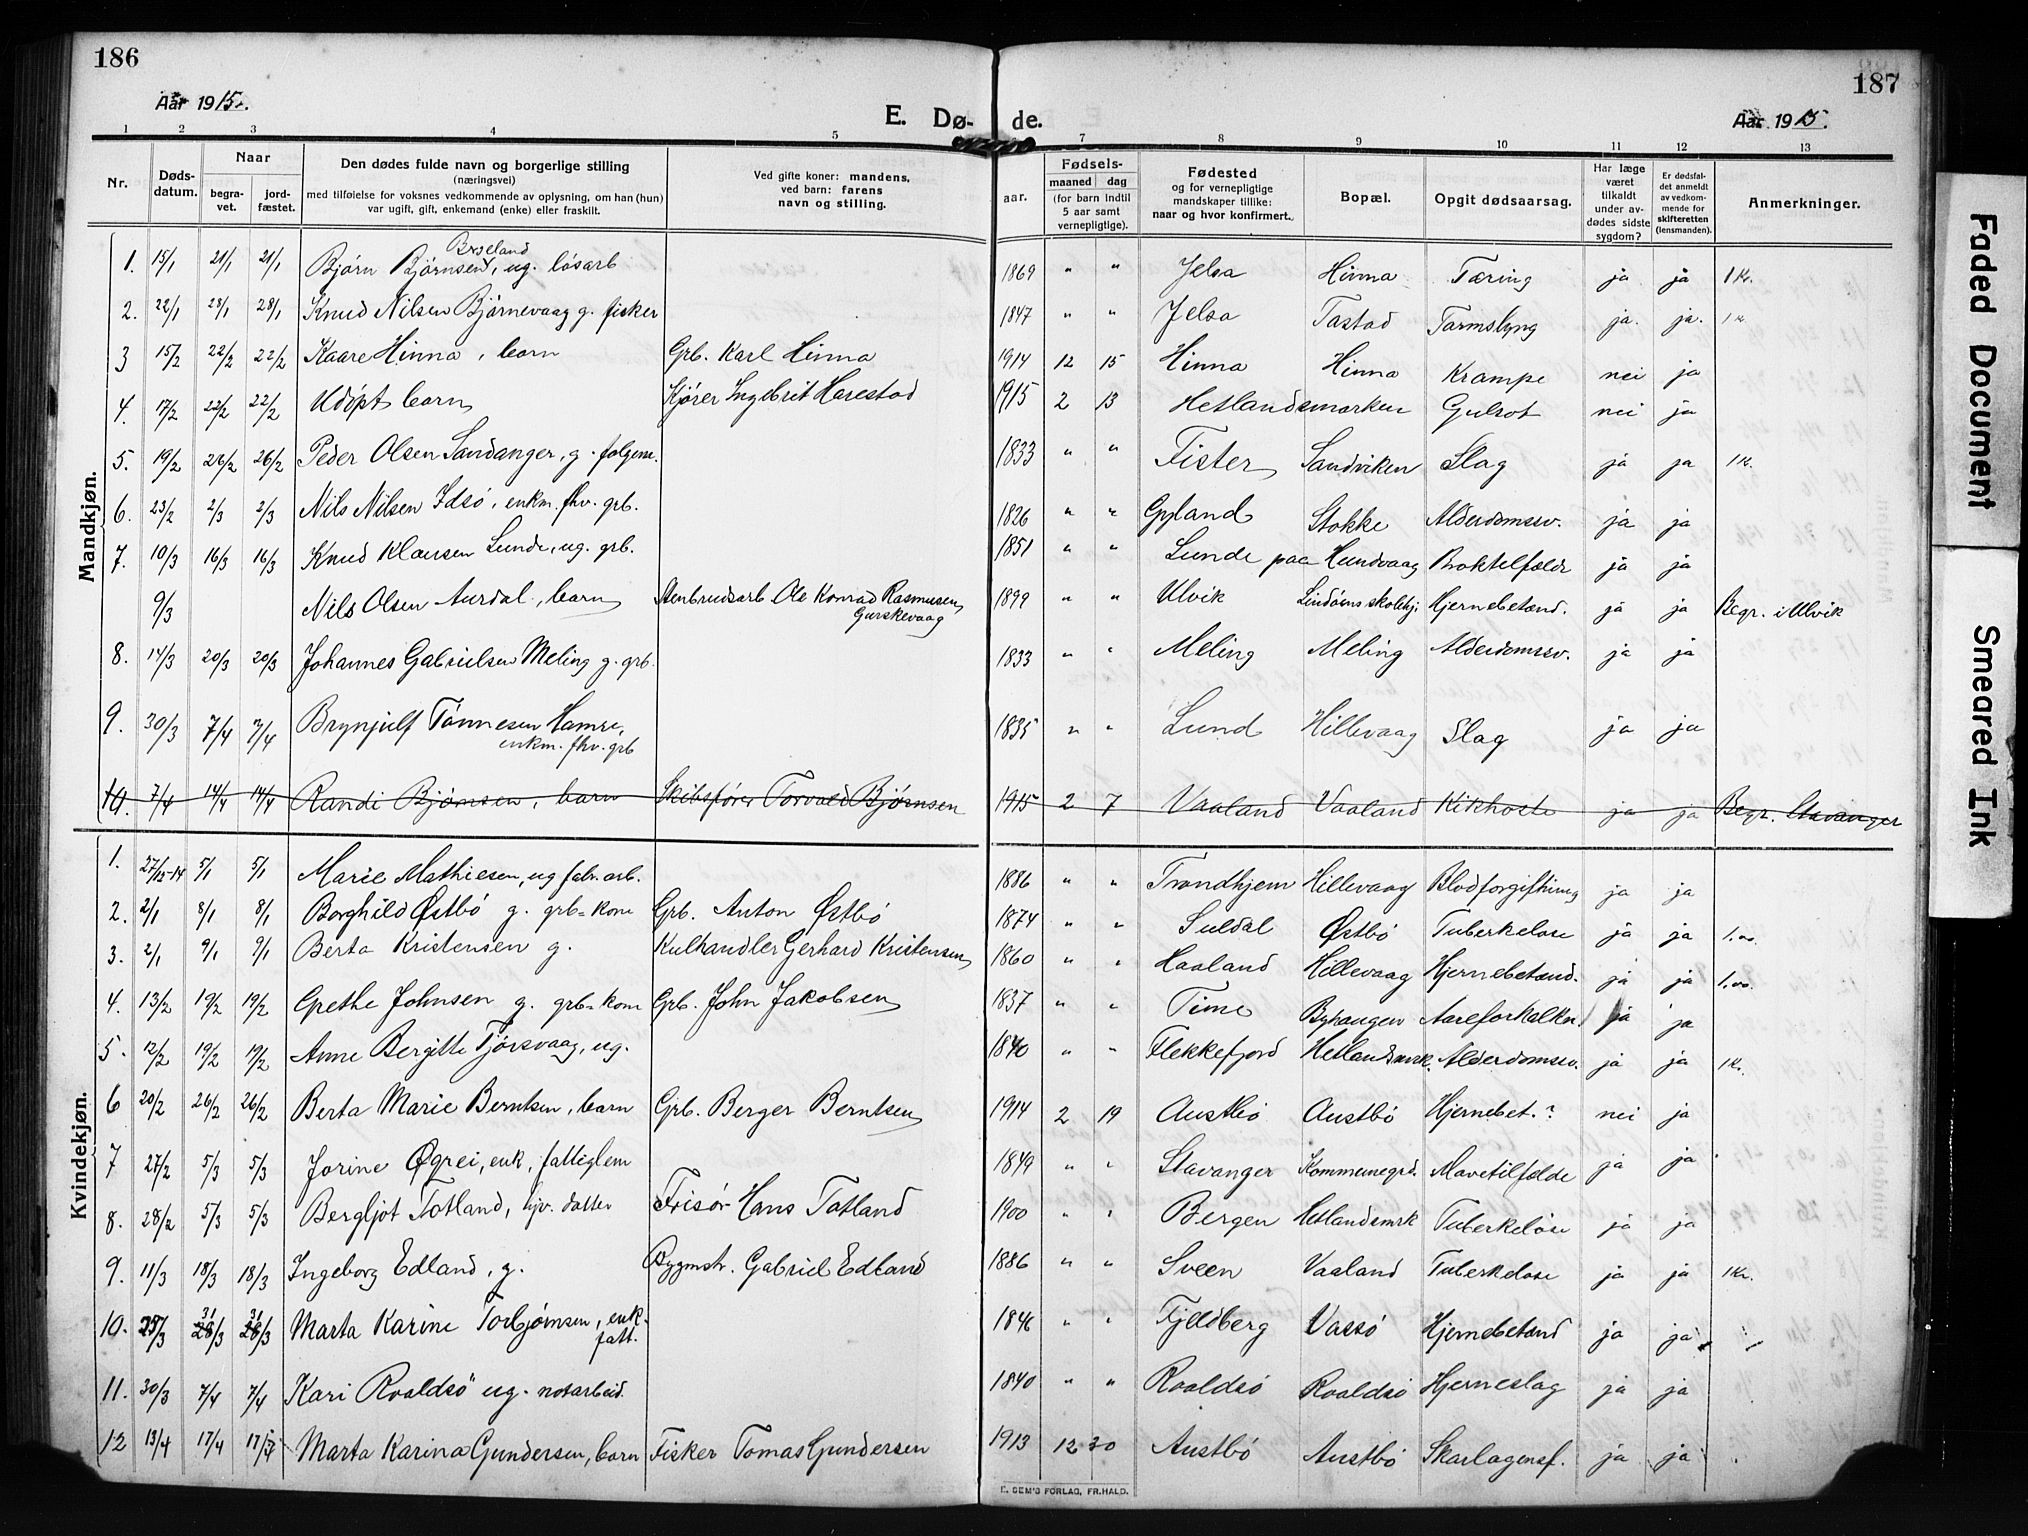 186
187
Aar 1915.
E. Dø-
de.
Aar 1915.
1 2 3 4 5 7 8 9 10 11 12 13
Nr.
Døds-
datum.
Naar
begra-
vet.
jord-
fæstet.
Den dødes fulde navn og borgerlige stilling
(næringsvei)
med tilføielse for voksnes vedkommende av oplysning, om han (hun)
var ugift, gift, enkemand (enke) eller fraskilt.
Ved gifte koner: mandens,
ved barn: farens
navn og stilling.
Fødsels-
aar.
maaned dag
(for barn indtil
5 aar samt
vernepligtige).
Fødested
og for vernepligtige
mandskaper tillike:
naar og hvor konfirmert.
Bopæl.
Opgit dødsaarsag.
Har læge
været
tilkaldt
under av-
dødes sidste
sygdom?
Er dødsfal-
det anmeldt
av vedkom-
mende for
skifteretten
(lensmanden).
Anmerkninger.
Mandkjøn.
Brøeland
1. 15/1 21/1 21/1 Bjørn Bjørnsen, ug. løsarb 1869 " " Jelsa Hinna Tæring ja ja 1 Kr.
2. 22/1 28/1 28/1 Knud Nilsen Bjørnevaag g. fisker 1847 " " Jelsa Tastad Tarmslyng ja. ja. 1 Kr.
3 15/2 22/2 22/2 Kaare Hinna, barn Grb. Karl Hinna 1914 12 15 Hinna Hinna Krampe nei ja
4. 17/2 22/2 22/2 Udøpt barn Kjører Ingebrit Harestad 1915 2 13 Hetlandsmarken Gulsot nei ja
5. 19/2 26/2 26/2 Peder Olsen Sandanger, g. folgem. 1833 " " Fister Sandviken Slag ja ja 1 Kr.
6. 23/2 2/3 2/3 Nils Nilsen Idsø, enkm. fhv. grb. 1826 " " Gyland Stokke Alderdomssv. ja ja
7. 10/3 16/3 16/3 Knud Klausen Lunde, ug. grb. 1851 " " Lunde paa Hundvaag Broktelfælde ja ja
9/3 Nils Olsen Aurdal, barn Stenbrudsarb Ole Konrad Rasmussen 1899 " " Ulvik Lindøens skolehj. Hjernebetænd. ja ja Begr. i Ulvik
Gurskevaag
8. 14/3 20/3 20/3 Johannes Gabrielsen Meling g. grb. 1833 " " Meling Meling Alderdomssv. ja ja
9. 30/3 7/4 7/4 Brynjulf Tønnesen Hamre, 1835 " " Lund Hillevaag Slag ja ja
enkm. fhv. grb
10. 7/4 14/4 14/4 Randi Bjørnsen, barn Skibsfører Torvald Bjørnsen 1915 2 7 Vaaland Vaaland Kikhoste ja ja Begr. Stavanger
Kvindekjøn.
1. 27/12-14 5/1 5/1 Marie Mathiesen, ug fabr. arb. 1886 " " Trondhjem Hillevaag Blodforgiftning ja ja
2. 2/1 8/1 8/1 Borghild Østbø g. grb=kone Grb. Anton Østbø 1874 " " Suldal Østbø Tuberkelose ja ja 1.00.
3. 2/1 9/1 9/1 Berta Kristensen g. Kulhandler Gerhard Kristensen 1860 " " Haaland Hillevaag Hjernebetænd. ja ja 1.00.
4. 13/2 19/2 19/2 Grethe Johnsen g. grb=kone Grb. John Jakobsen 1837 " " Time Byhaugen Aareforkalkn. ja ja
5. 12/2 19/2 19/2 Anne Bergitte Tjørsvaag, ug. 1840 " " Flekkefjord Hetlandsmrk. Alderdomssv. ja ja 1 Kr.
6 20/2 26/2 26/2 Berta Marie Berntsen, barn Grb. Berger Berntsen 1914 2 19 Austbø Austbø Hjernebet.? nei ja
7 27/2 5/3 5/3 Jorine Øgrei, enk, fattiglem 1849 " " Stavanger Kommunegrd. Mavetilfælde ja ja
8. 28/2 5/3 5/3 Bergljot Totland, hjv. datter Frisør Hans Totland 1900 " " Bergen Hetlandsmrk Tuberkeløse ja ja
9. 11/3 18/3 18/3 Ingeborg Edland, g. Bygmstr. Gabriel Edland 1886 " " Sveen Vaaland Tuberkelose ja ja 1 Kr.
10. 25/3 31/3 31/3 Marta Karine Torbjørnsen, enk. 1846 " " Fjeldberg Vassø Hjernebetænd ja ja
fatt.
11. 30/3 7/4 7/4 Kari Roaldsø ug. notarbeid. 1840 " " Roaldsø Roaldsø Hjerneslag ja ja
12 13/4 17/4 17/4 Marta Karina Gundersen, barn Fisker Tomas Gundersen 1913 12 30 Austbø Austbø Skarlagensf. ja ja
E. SEM'S FORLAG, FR.HALD.
Faded Document
Smeared Ink